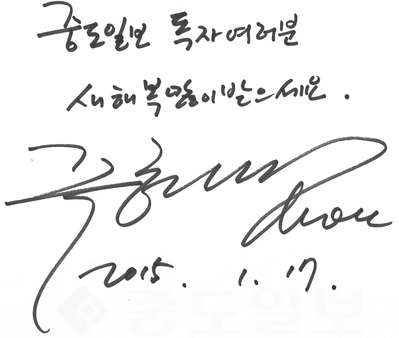 중도일보 독자여러분
새해 복 많이 받으세요.
2015. 1. 17.
중도일보